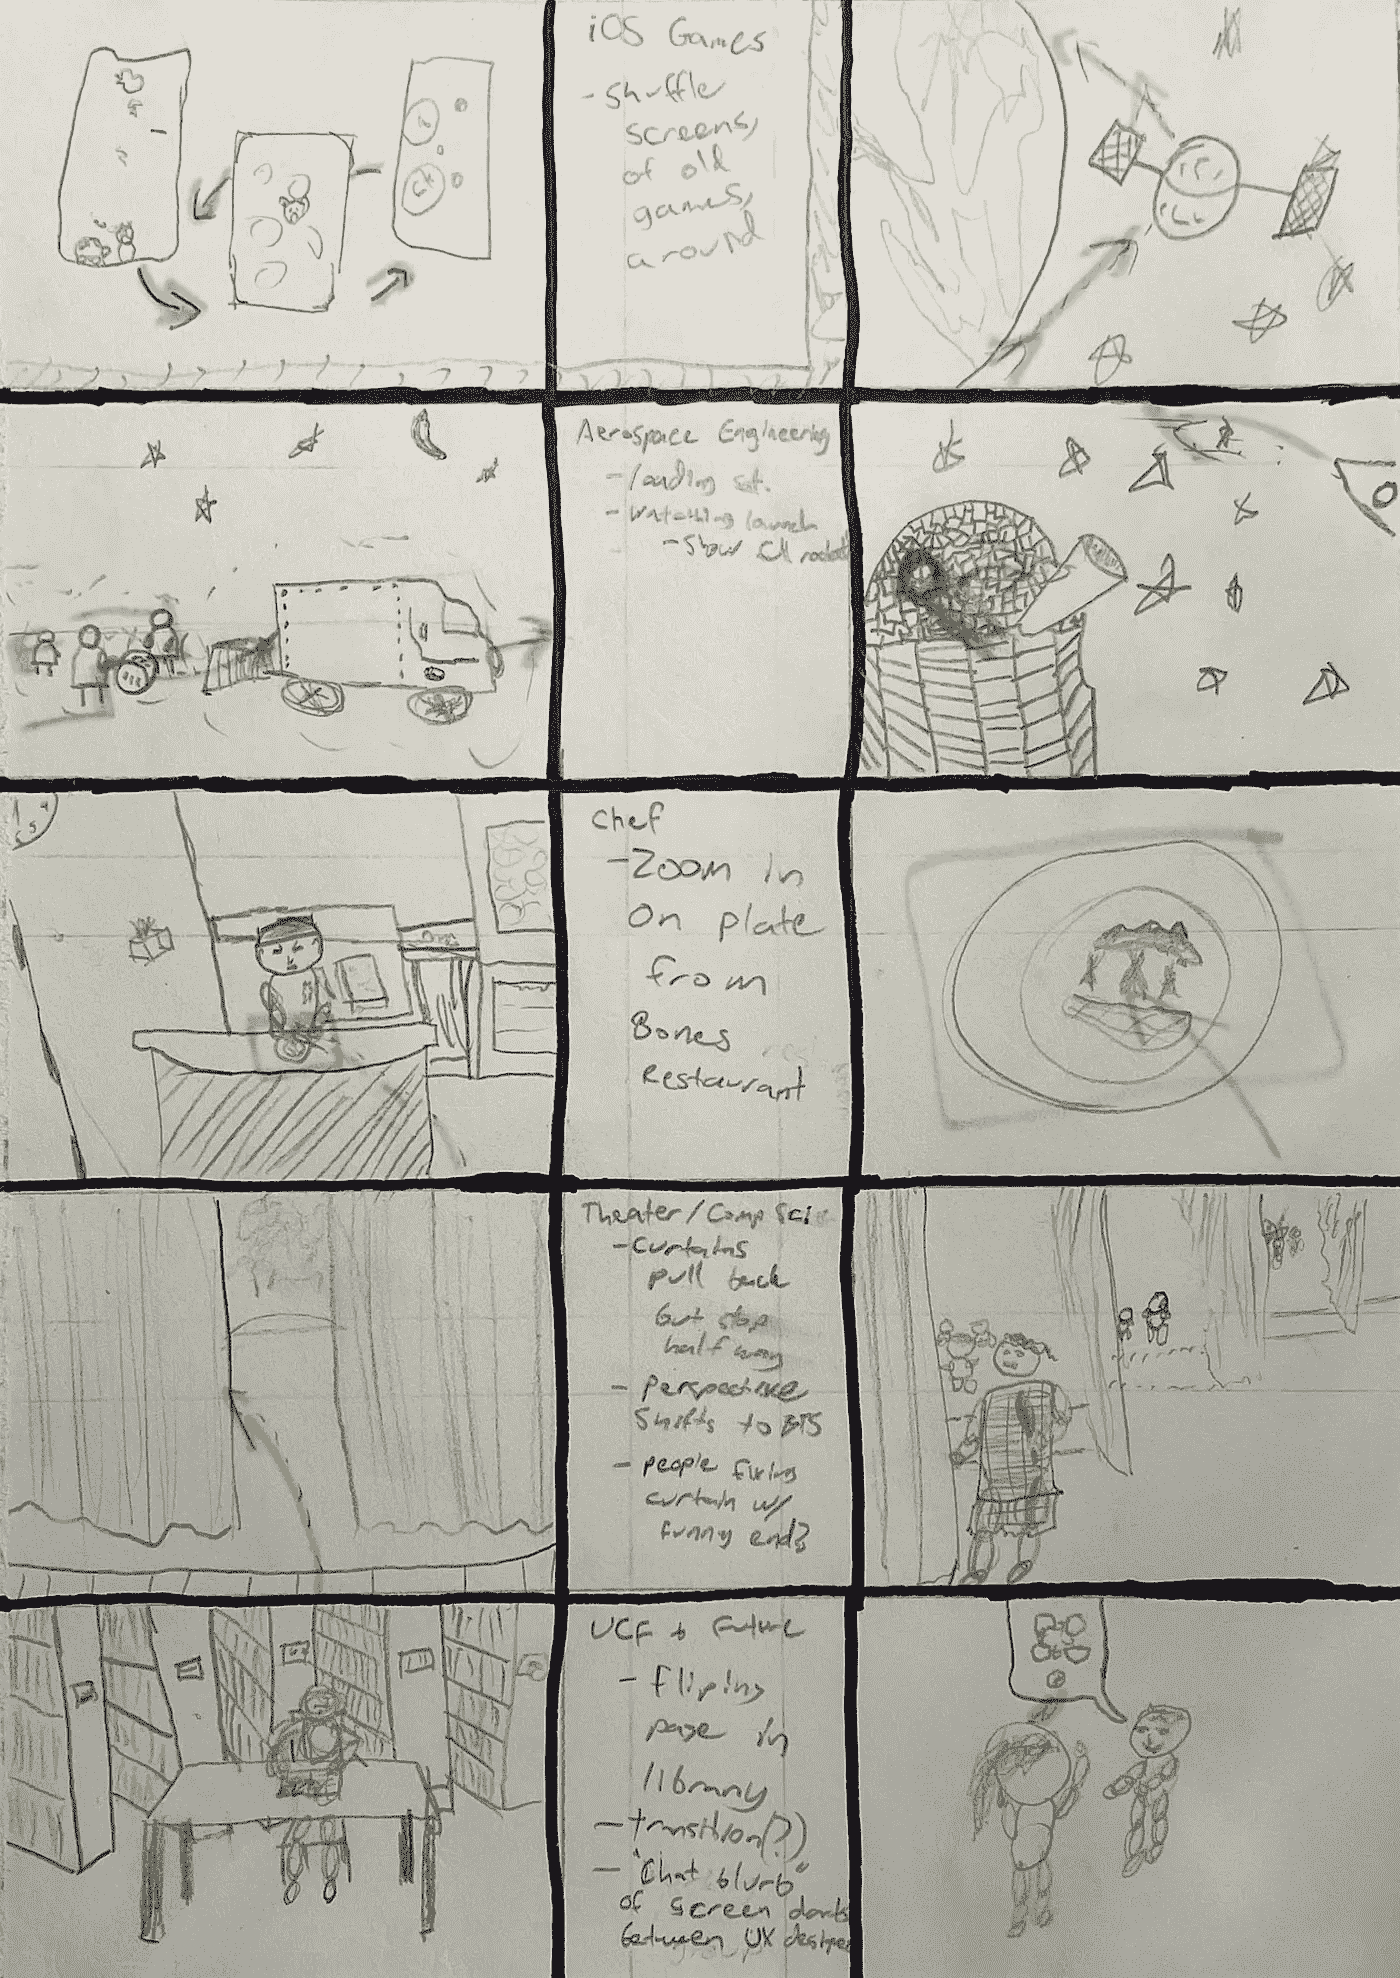 iOS Games
- Shuffle
screens,
of old
games,
around
Aerospace Engineering
- loading sat.
- watching launch
- Show full
Chef
- Zoom in
on plate
from
Bones
Restaurant
Theater/Comp Sci
- Curtains
pull back
but stop
half way
- Perspective
Shifts to BTS
- people fixing
curtain w/
funny end?
UCF + Future
- fliping
page in
library
- transition(?)
- "Chat blurb"
of screen
between UX